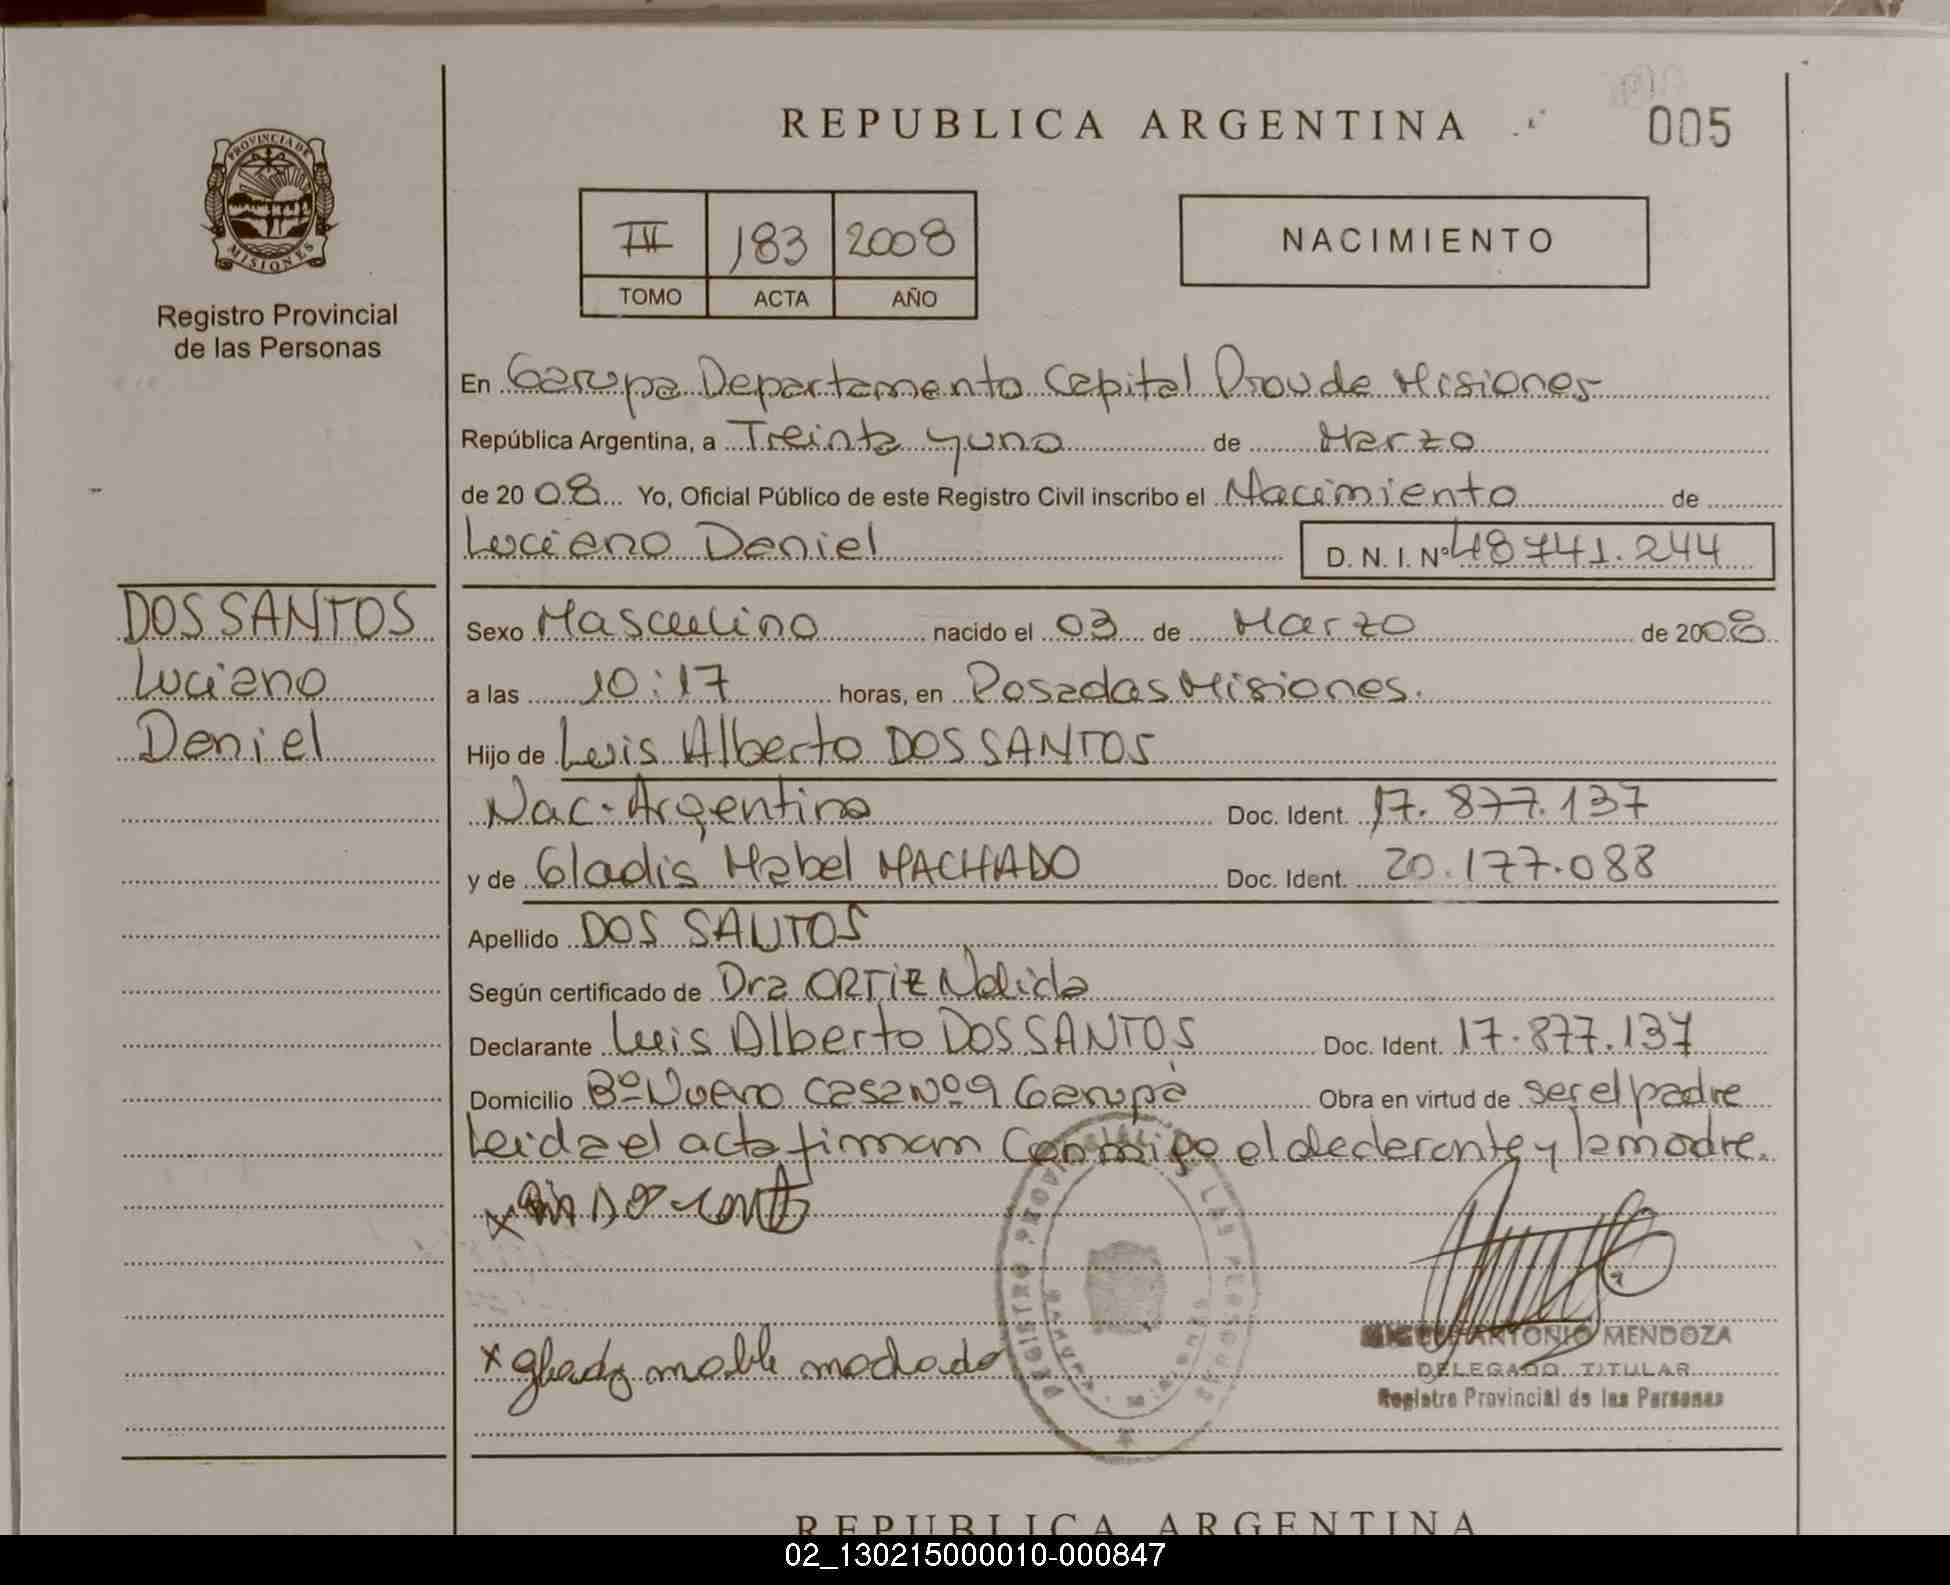 REPUBLICA ARGENTINA
005
PROVINCIA DE
MISIONES
Registro Provincial
de las Personas
III 183 2008
TOMO ACTA AÑO
NACIMIENTO
En Garupa Departamento Capital Prov de Misiones
República Argentina, a Treinta y uno de Marzo
de 2008 Yo, Oficial Público de este Registro Civil inscribo el Nacimiento de
Luciano Daniel
D. N. I. Nº 48741.244
DOS SANTOS
Luciano
Daniel
Sexo Masculino nacido el 03 de Marzo de 2008
a las 10:17 horas, en Posadas Misiones.
Hijo de Luis Alberto DOS SANTOS
Nac. Argentina Doc. Ident. 17.877.137
y de Gladis Mabel MACHADO Doc. Ident. 20.177.088
Apellido DOS SANTOS
Según certificado de Dra ORTIZ Nelida
Declarante Luis Alberto DOS SANTOS Doc. Ident. 17.877.137
Domicilio Bº Nuevo Casa Nº 9 Garupá Obra en virtud de ser el padre
Leida el acta firman Conmigo el declarante y la madre.
REGISTRO PROVINCIAL DE LAS PERSONAS
ANTONIO MENDOZA
DELEGADO TITULAR
Registro Provincial de las Personas
x mable machado
REPUBLICA ARGENTINA
02_130215000010-000847